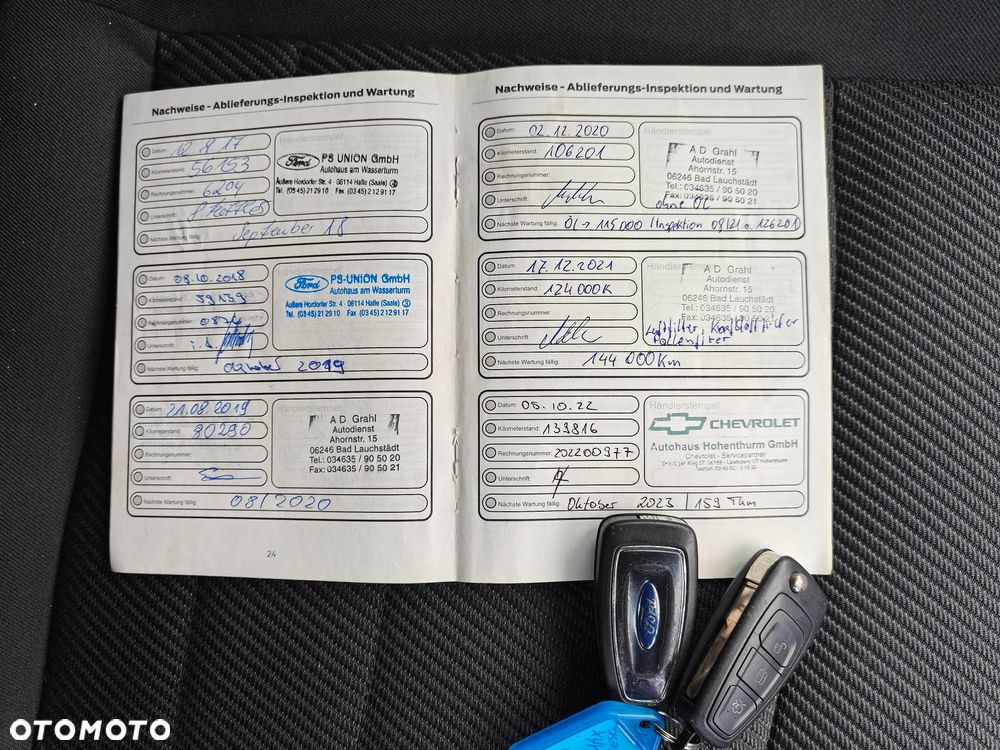 Nachweise - Ablieferungs-Inspektion und Wartung
Datum: 12.9.17
Kilometerstand: 56153
Rechnungsnummer: 6204
Unterschrift:
Nächste Wartung fällig: September 18
Händlerstempel
Ford PS UNION GmbH
Autohaus am Wasserturm
Äußere Hordorfer Str. 4 · 06114 Halle (Saale)
Tel. (03 45) 21 29 10 Fax (03 45) 2 12 91 17
Datum: 08.10.2018
Kilometerstand:
Rechnungsnummer:
Unterschrift: i.A.
Nächste Wartung fällig: Oktober 2019
Ford PS-UNION GmbH
Autohaus am Wasserturm
Äußere Hordorfer Str. 4 · 06114 Halle (Saale) 3
Tel. (03 45) 21 29 10 Fax (03 45) 2 12 91 17
Datum: 21.08.2019
Kilometerstand: 80290
Rechnungsnummer:
Unterschrift:
Nächste Wartung fällig: 08/2020
Händlerstempel
A D Grahl
Autodienst
Ahornstr. 15
06246 Bad Lauchstädt
Tel.: 034635 / 90 50 20
Fax: 034635 / 90 50 21
24
Nachweise - Ablieferungs-Inspektion und Wartung
Datum: 02.12.2020
Kilometerstand: 106201
Rechnungsnummer:
Unterschrift:
Nächste Wartung fällig: Öl → 115000 / Inspektion 09/21 o. 126201
Händlerstempel
A D Grahl
Autodienst
Ahornstr. 15
06246 Bad Lauchstädt
Tel.: 034635 / 90 50 20
Fax: 034635 / 90 50 21
ohne Öl
Datum: 17.12.2021
Kilometerstand: 124000K
Rechnungsnummer:
Unterschrift:
Nächste Wartung fällig: 144 000 Km
Händlerstempel
A D Grahl
Autodienst
Ahornstr. 15
06246 Bad Lauchstädt
Tel.: 034635 / 90 50 20
Fax: 034635 / 90 50 21
Luftfilter, Kraftstofffilter
Pollenfilter
Datum: 05.10.22
Kilometerstand: 139816
Rechnungsnummer: 202200977
Unterschrift:
Nächste Wartung fällig: Oktober 2023 / 159 Tkm
Händlerstempel
CHEVROLET
Autohaus Hohenthurm GmbH
Chevrolet - Servicepartner
Ford
OTOMOTO